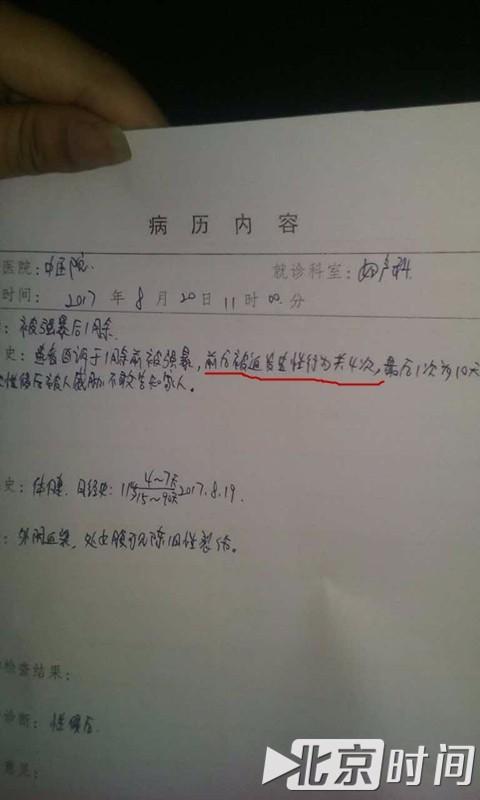 病历内容
医院：中医院 就诊科室：妇产科
时间：2017年8月20日11时00分
：被强暴后1月余.
史：患者自诉于1月余前被强暴，前后被迫发生性行为共4次，最后1次为10天
性侵后被人威胁不敢告知家人。
史：体健.月经史：11岁 4～7天/15～90天 2017.8.19.
：外阴 处女膜可见陈旧性裂伤。
检查结果：
诊断：性侵后.
意见：
北京时间